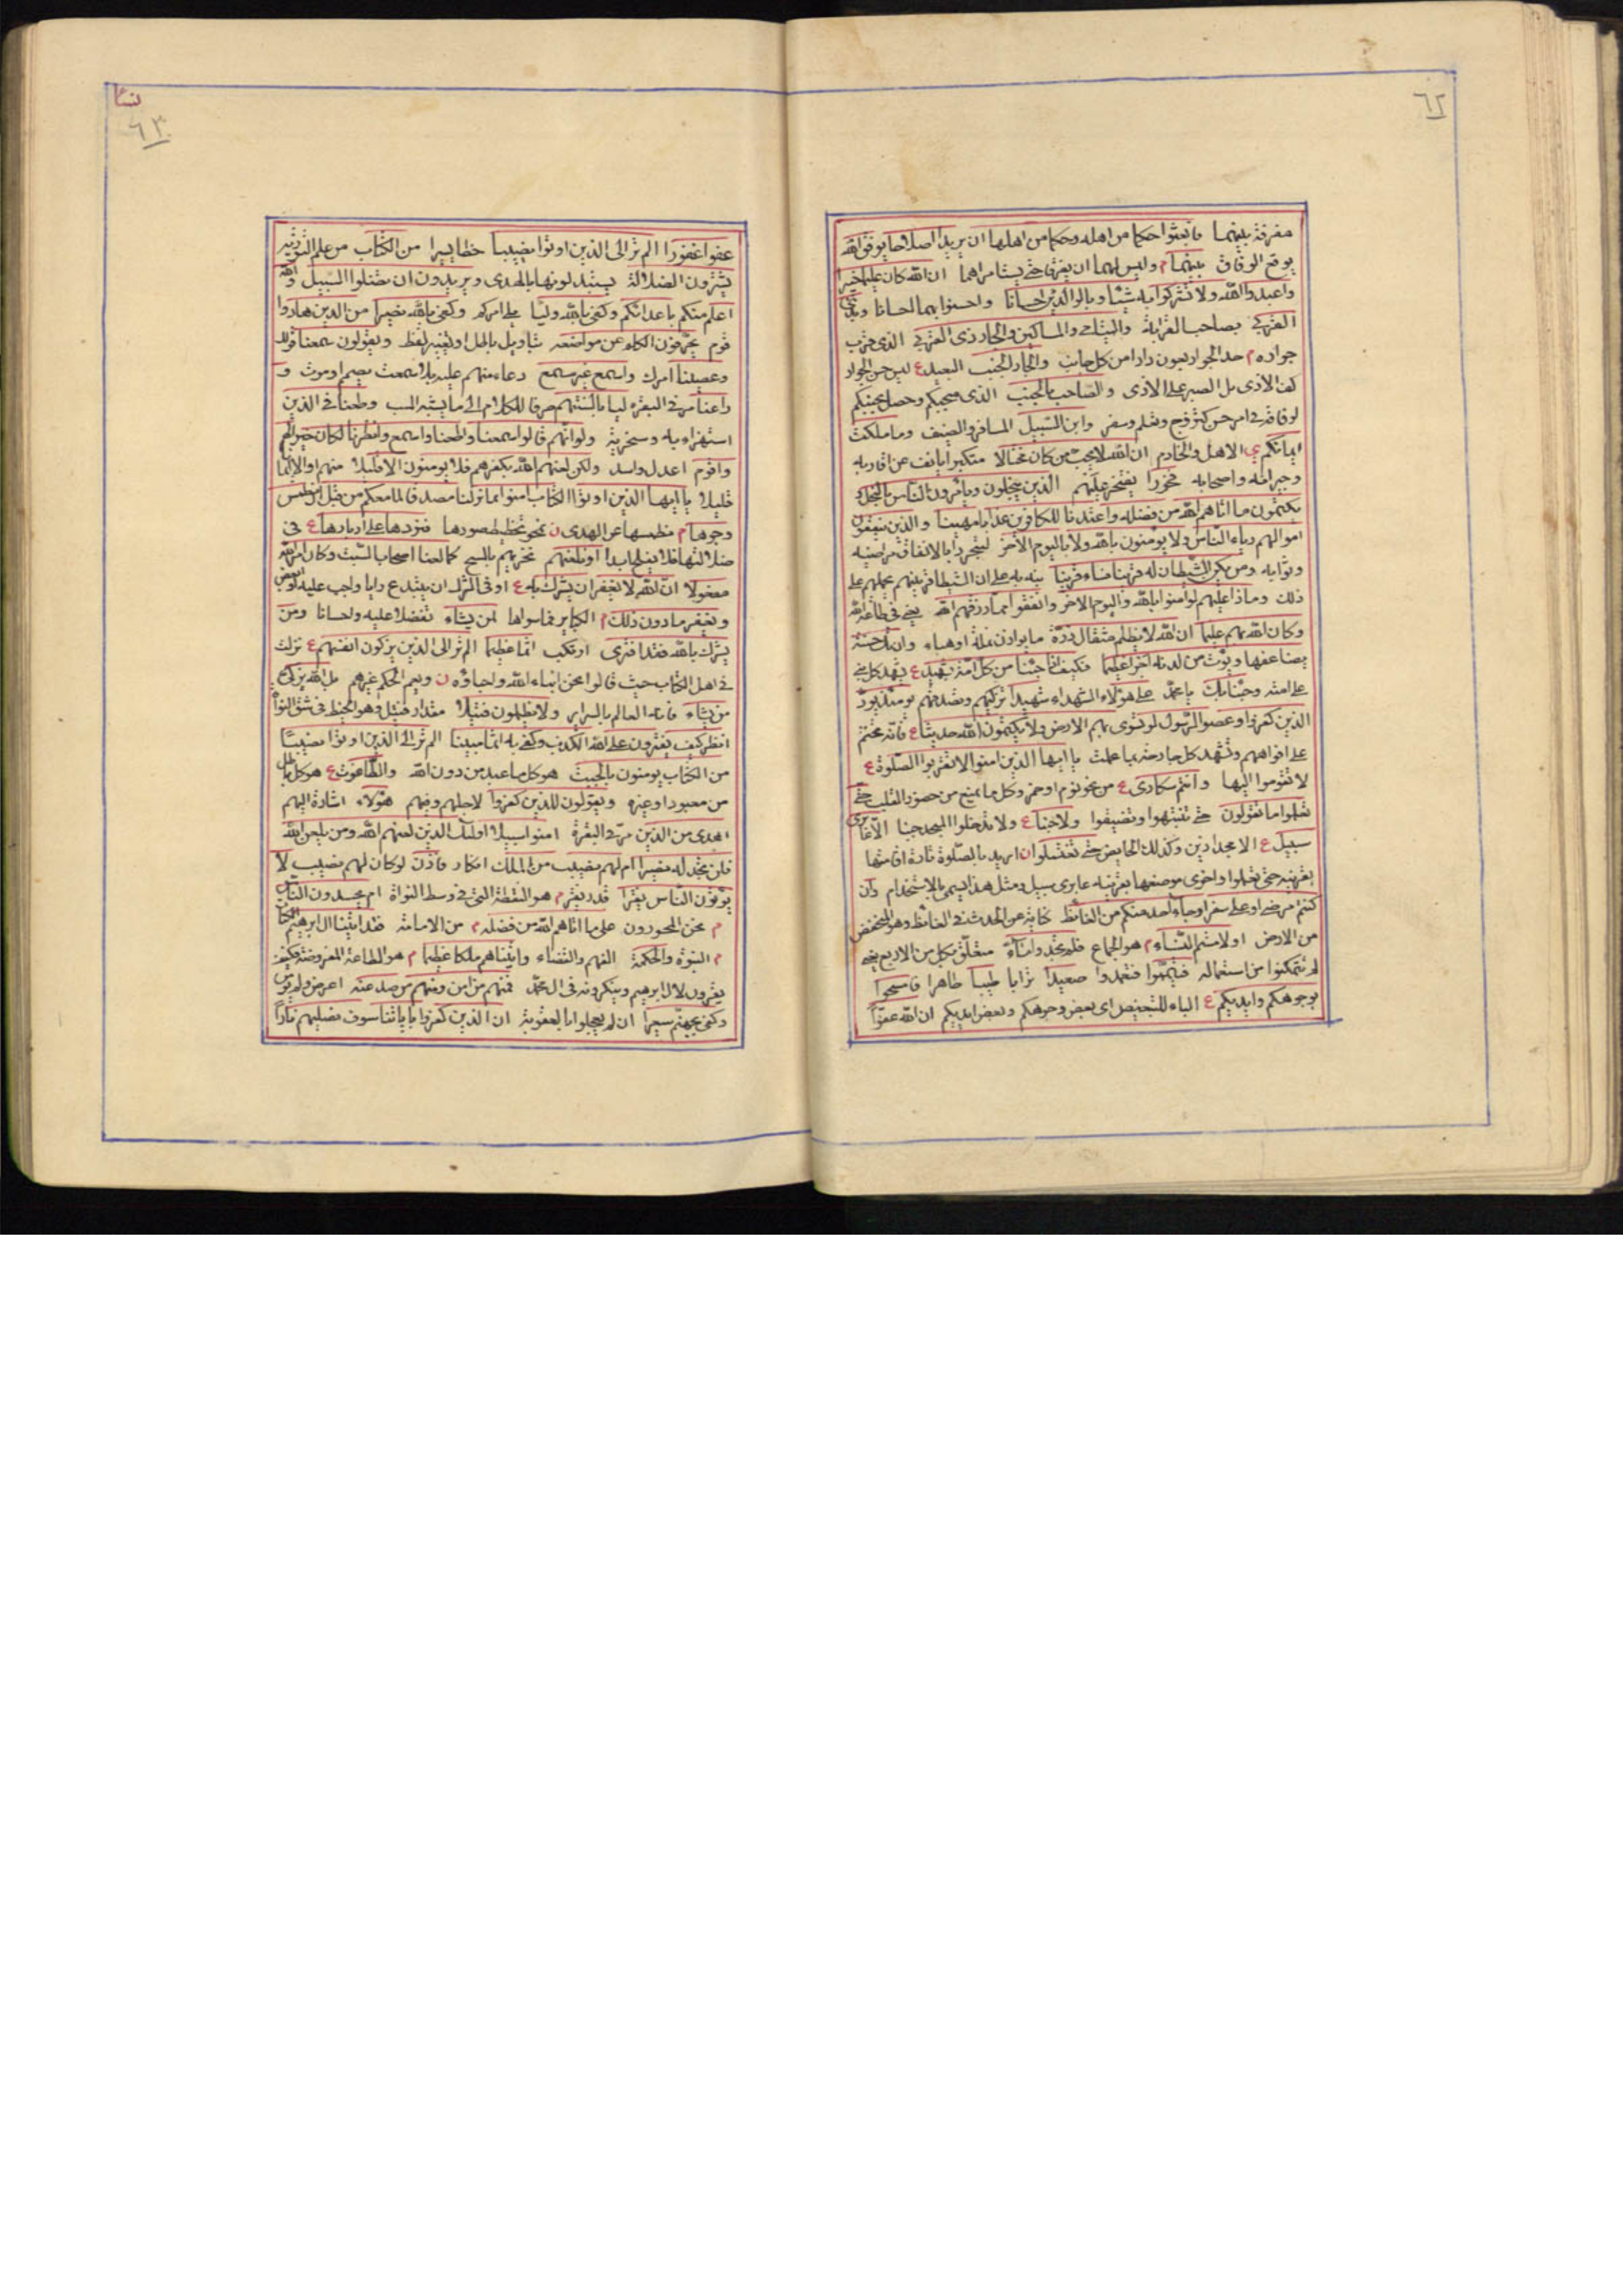 ٦٢
مفرقة بينهما فابعثوا حكما من اهله وحكما من اهلها ان يريدا اصلاحا يوفق الله
يوقع الوفاق بينهما م وليس لهما ان يفرقا حتى يستامراهما ان الله كان عليما خبيرا
واعبدوا الله ولا تشركوا به شيئا وبالوالدين احسانا واحسنوا بهما احسانا وبذي
القربى بصاحب القرابة واليتامى والمساكين والجار ذى القربى الذى قرب
جواره م حد الجوار اربعون دارا من كل جانب والجار الجنب البعيد ع ليس حسن الجوار
كف الاذى بل الصبر على الاذى والصاحب بالجنب الذى صحبكم وحصل بجنبكم
لرفاقة فى امر حسن كتزوج وتعلم وسفر وابن السبيل المسافر والضيف وما ملكت
ايمانكم ي الاهل والخادم ان الله لا يحب من كان مختالا متكبرا يانف عن اقاربه
وجيرانه واصحابه فخورا يفتخر عليهم الذين يبخلون ويامرون الناس بالبخل و
يكتمون ما اتاهم الله من فضله واعتدنا للكافرين عذابا مهينا والذين ينفقون
اموالهم رياء الناس ولا يؤمنون بالله ولا باليوم الاخر ليتحروا بالانفاق مراضيه
وثوابه ومن يكن الشيطان له قرينا فساء قرينا نبه به على ان الشيطان قرينهم يحملهم على
ذلك وماذا عليهم لو امنوا بالله واليوم الاخر وانفقوا مما رزقهم الله يعنى فى طاعة الله
وكان الله بهم عليما ان الله لا يظلم مثقال ذرة ما يوازن نملة او هباء وان تك حسنة
يضاعفها ويؤت من لدنه اجرا عظيما فكيف اذا جئنا من كل امة بشهيد ع يشهد كل نبى
على امته وجئنا بك يا محمد على هؤلاء الشهداء شهيدا تزكيهم وتصدقهم يومئذ يود
الذين كفروا وعصوا الرسول لو تسوى بهم الارض ولا يكتمون الله حديثا ع فانه يختم
على افواههم وتشهد كل جارحة بما عملت يا ايها الذين امنوا لا تقربوا الصلوة ع
لا تقوموا اليها وانتم سكارى ع من نحو نوم او خمر وكل ما يمنع من حضور القلب حتى
تعلموا ما تقولون حتى تتنبهوا وتفيقوا ولا جنبا ع ولا تدخلوا المسجد جنبا الا عابرى
سبيل ع الا مجتازين وكذلك الحايض حتى تغتسلوا ن اريد بالصلوة تارة اقامتها
بقرينة حتى تعلموا واخرى موضعها بقرينة عابرى سبيل ومثل هذا يسمى بالاستخدام وان
كنتم مرضى او على سفر او جاء احد منكم من الغائط كناية عن الحدث فى الغائط وهو المنخفض
من الارض او لامستم النساء م هو الجماع فلم تجدوا ماء متعلق بكل من الاربع يعنى
لم تتمكنوا من استعماله فتيمموا فتعمدوا صعيدا ترابا طيبا طاهرا فامسحوا
بوجوهكم وايديكم ع الباء للتبعيض اى بعض وجوهكم وبعض ايديكم ان الله عفوا
نسا
٦٣
عفوا غفورا الم تر الى الذين اوتوا نصيبا حظا يسيرا من الكتاب من علم التورية
يشترون الضلالة يستبدلونها بالهدى ويريدون ان تضلوا السبيل والله
اعلم منكم باعدائكم وكفى بالله وليا يلى امركم وكفى بالله نصيرا من الذين هادوا
قوم يحرفون الكلم عن مواضعه بتاويل باطل او تغيير لفظ ويقولون سمعنا قولك
وعصينا امرك واسمع غير مسمع دعاء منهم عليه بلا سمعت بصمم او موت و
راعنا مر فى البقرة ليا بالسنتهم صرفا للكلام الى ما يشبه السب وطعنا فى الدين
استهزاء به وسخرية ولو انهم قالوا سمعنا واطعنا واسمع وانظرنا لكان خيرا لهم
واقوم اعدل واسد ولكن لعنهم الله بكفرهم فلا يؤمنون الا قليلا منهم او الا ايمانا
قليلا يا ايها الذين اوتوا الكتاب امنوا بما نزلنا مصدقا لما معكم من قبل ان نطمس
وجوها م نطمسها عن الهدى ن نمحو تخطيط صورها فنردها على ادبارها ع فى
ضلالتها فلا يفلح ابدا او نلعنهم نخزيهم بالمسخ كما لعنا اصحاب السبت وكان امر الله
مفعولا ان الله لا يغفر ان يشرك به ع
ويغفر ما دون ذلك م الكباير فما سواها لمن يشاء تفضلا عليه واحسانا ومن
يشرك بالله فقد افترى ارتكب اثما عظيما الم تر الى الذين يزكون انفسهم ع نزلت
فى اهل الكتاب حيث قالوا نحن ابناء الله واحباؤه ن ويعم الحكم غيرهم بل الله يزكى
من يشاء فانه العالم بالسراير ولا يظلمون فتيلا مقدار فتيل وهو الخيط فى شق النواة
انظر كيف يفترون على الله الكذب وكفى به اثما مبينا الم تر الى الذين اوتوا نصيبا
من الكتاب يؤمنون بالجبت هو كل ما عبد من دون الله والطاغوت ع هو كل باطل
من معبود او غيره ويقولون للذين كفروا لاجلهم وفيهم هؤلاء اشارة اليهم
اهدى من الذين مر فى البقرة امنوا سبيلا اولئك الذين لعنهم الله ومن يلعن الله
فلن تجد له نصيرا ام لهم نصيب من الملك انكار فاذن لو كان لهم نصيب لا
يؤتون الناس نقيرا قدر نقير م هو النقطة التى فى وسط النواة ام يحسدون الناس
م نحن المحسودون على ما اتاهم الله من فضله م من الامامة فقد اتينا ال ابرهيم الكتاب
م النبوة والحكمة الفهم والقضاء واتيناهم ملكا عظيما م هو الطاعة المفروضة فكيف
يقرون لال ابرهيم وينكرونه فى ال محمد فمنهم من امن به ومنهم من صد عنه اعرض ولم يؤمن
وكفى بجهنم سعيرا ان لم يعجلوا بالعقوبة ان الذين كفروا باياتنا سوف نصليهم نارا